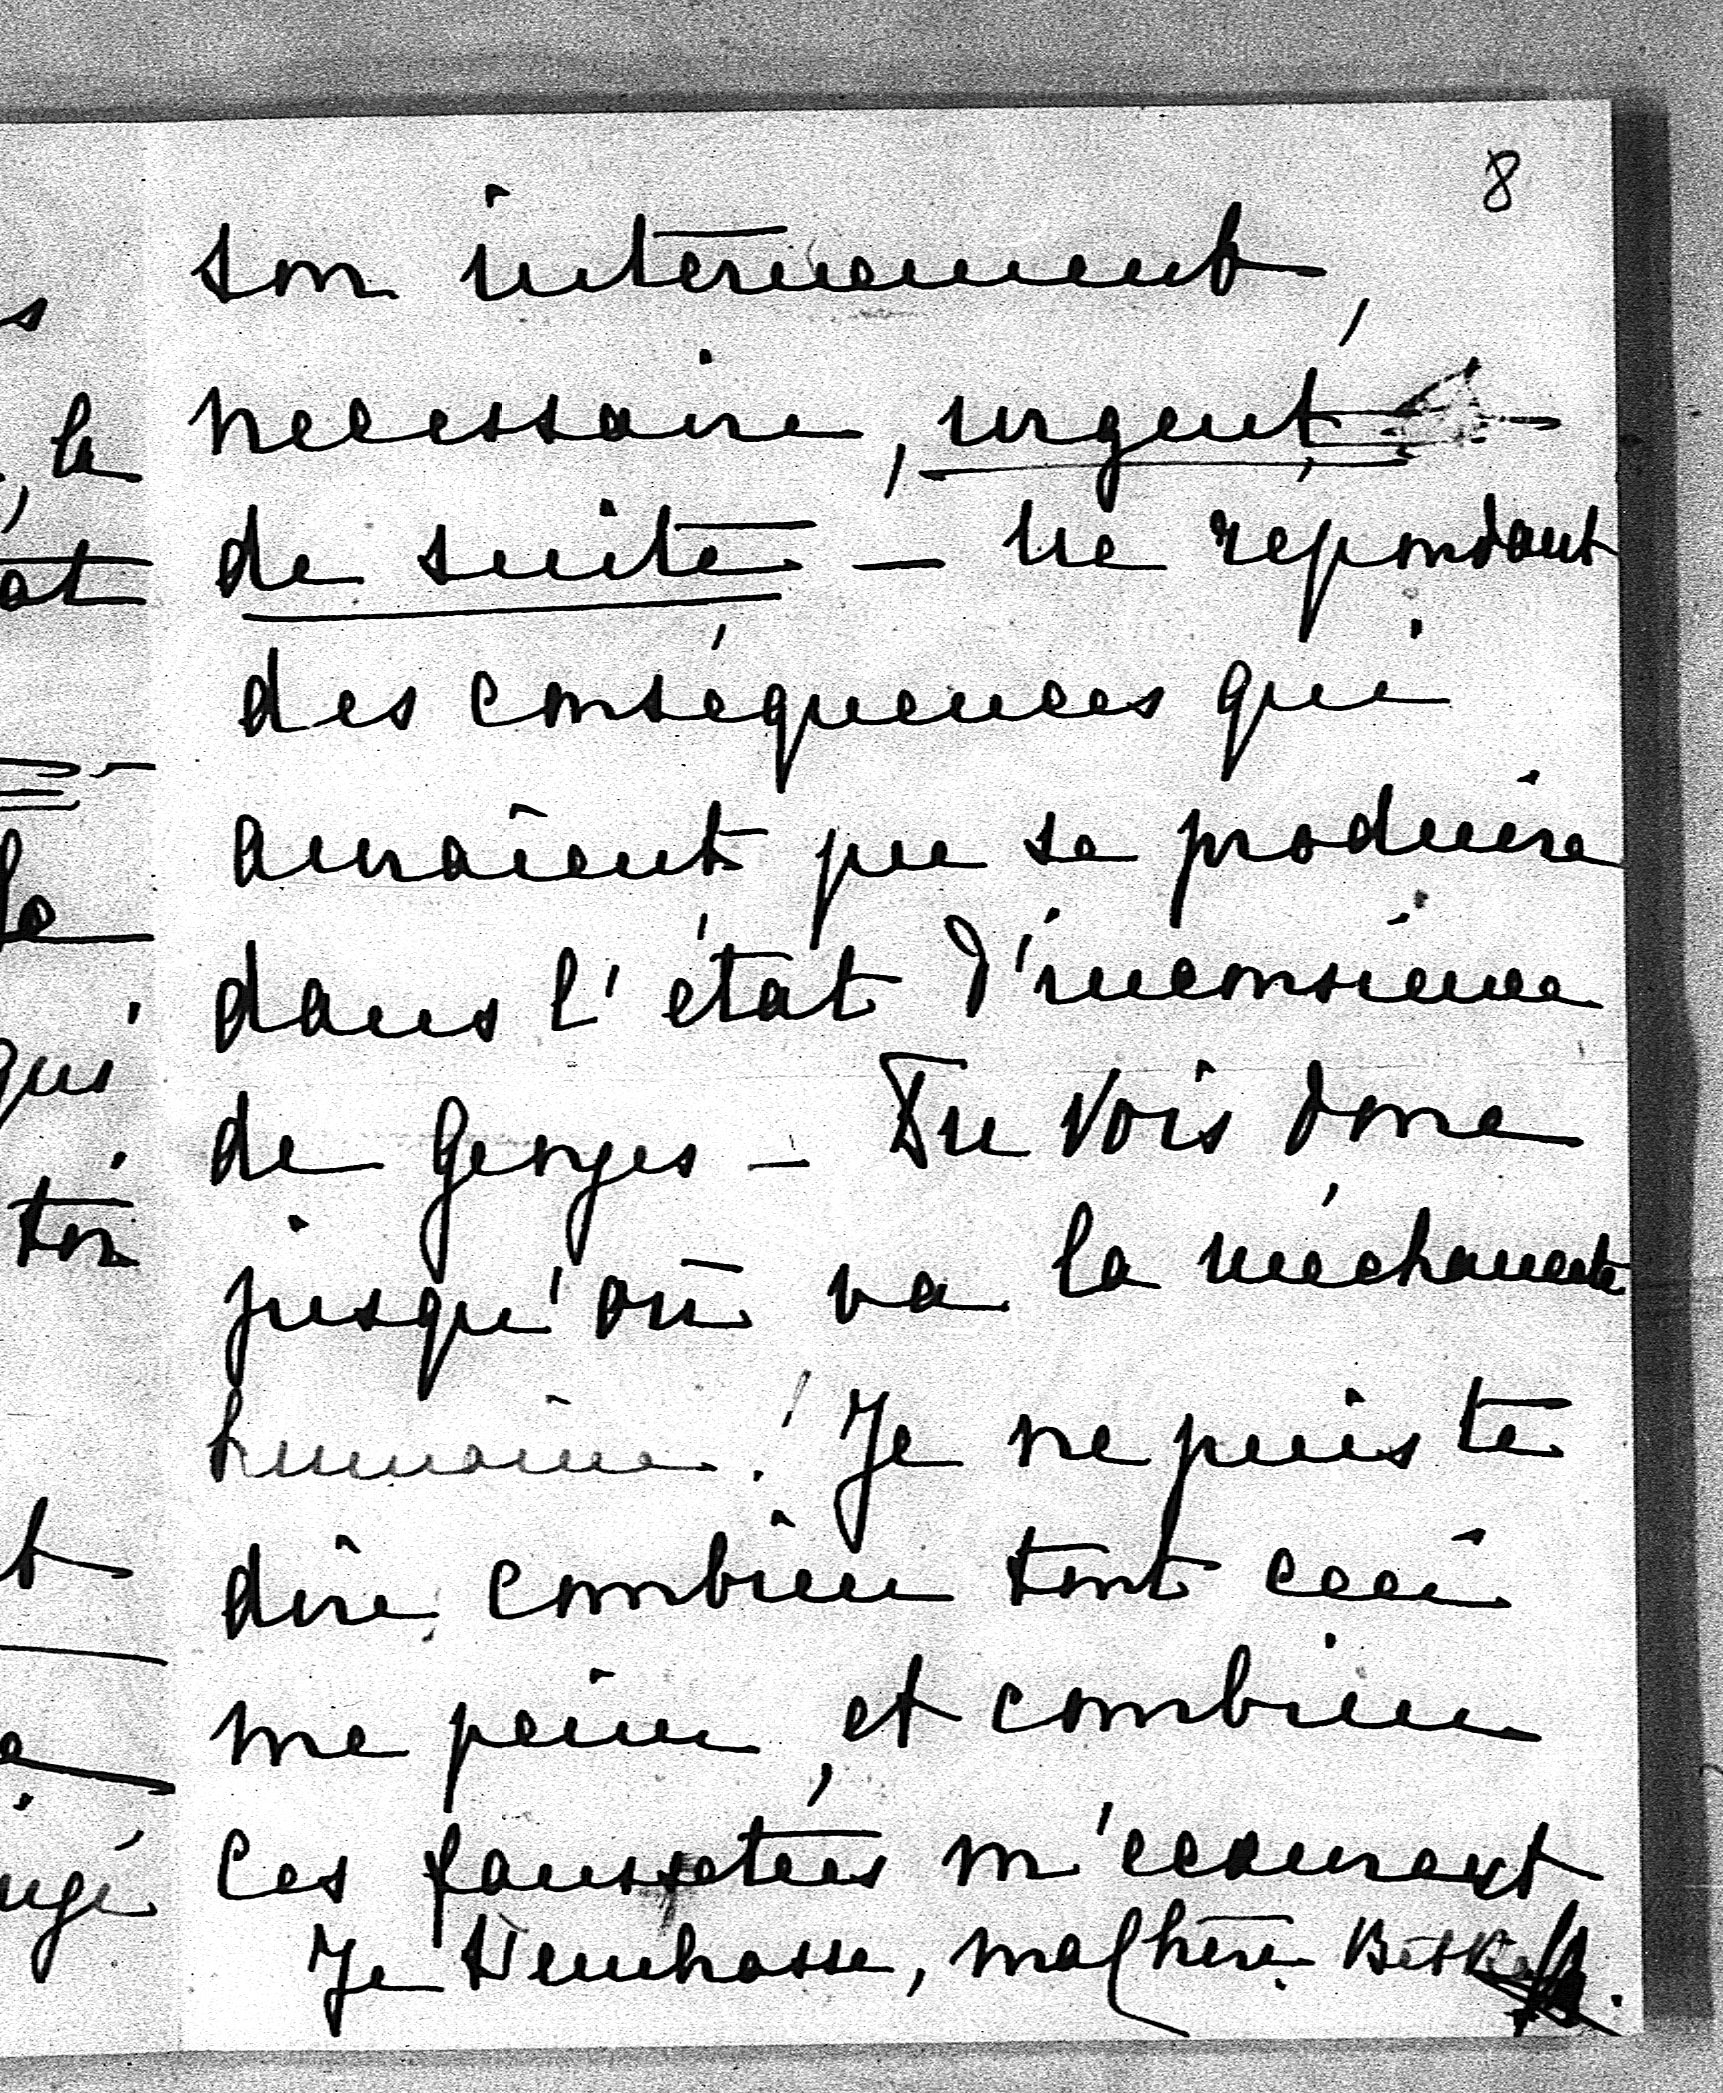 8
son internement,
nécessaire, urgent
de suite – ne répondant
des conséquences qui
auraient pu se produire
dans l'état d'inconsience
de Georges – Tu vois donc
jusqu'où va la méchanceté
humaine! Je ne puis te
dire combien tout ceci
me peine, et combien
ces faussetées m'écœurent
Je t'embrasse, ma chère